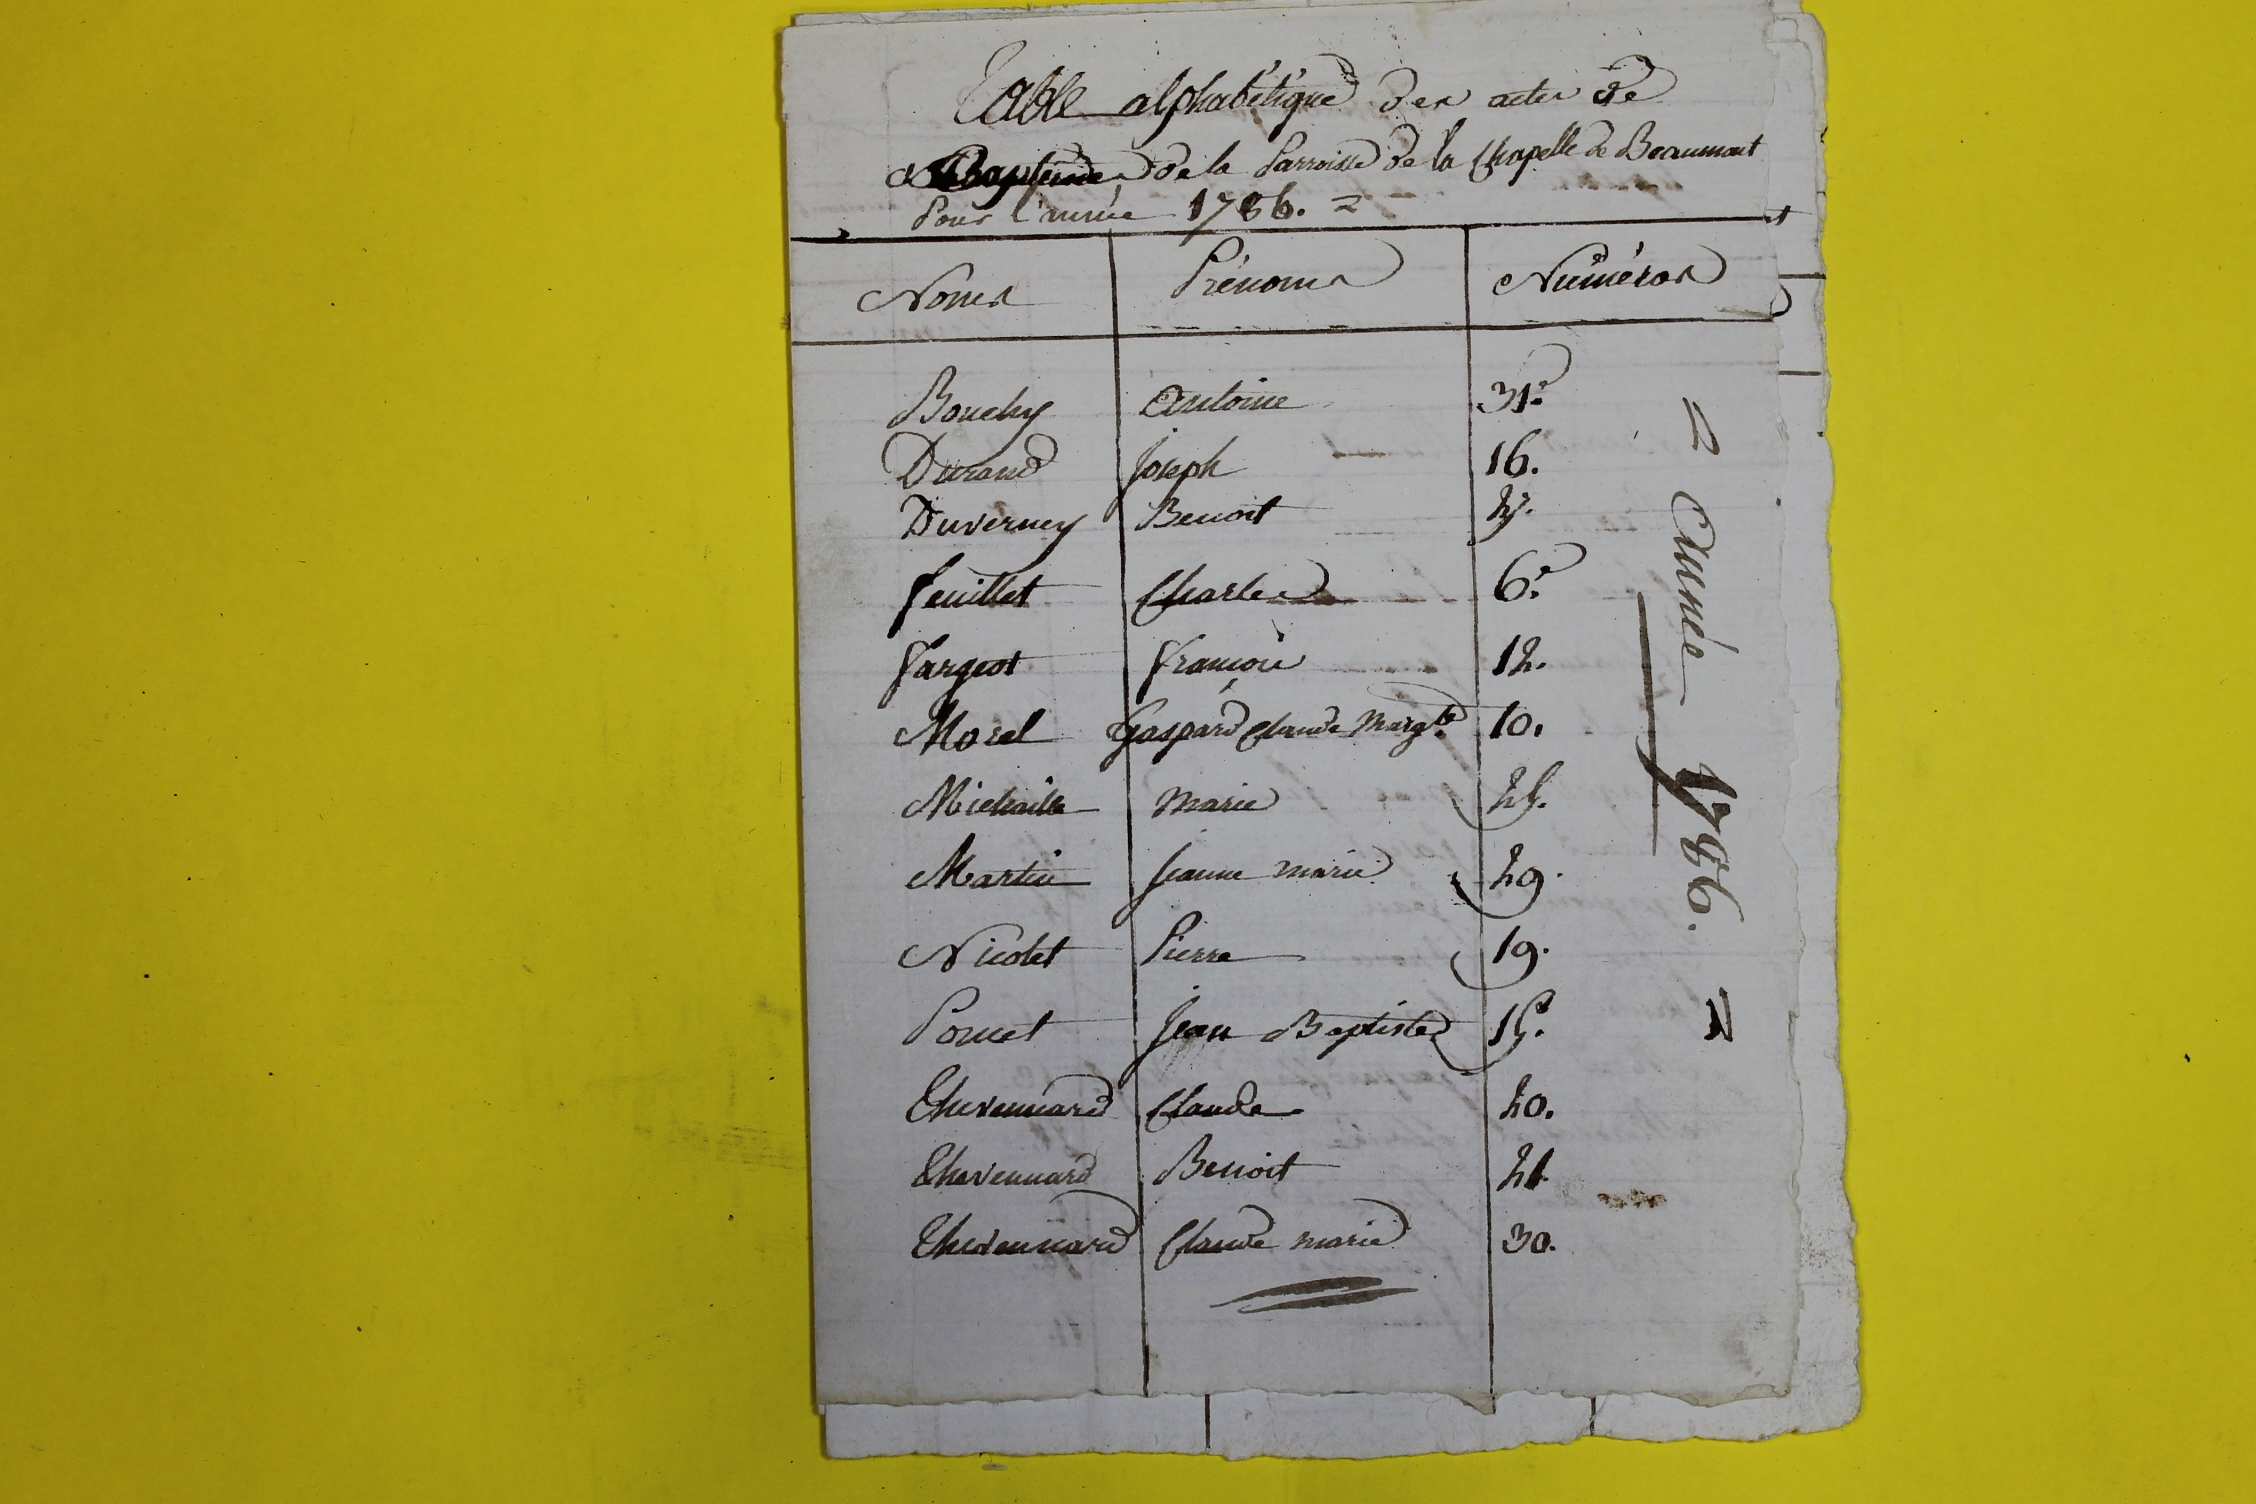 Table alphabétique des actes de
Baptême de la Parroisse de la Chapelle de Beaumont
Pour l'année 1786.
Noms Prénoms Numéros
Bouchy Antoine 31.
Durand Joseph 16.
Duverney Benoit
feuillet Charles 6.
fargeot françois 12.
Morel Gaspard Claude Marg.te 10.
Michaille Marie 25.
Martin Jeanne marie 29.
Nicolet Pierre 19.
Poncet Jean Baptiste 15.
Thevennard Claude 20.
Thevennard Benoit 21
Thevennard Claude marie 30.
Année 1786.